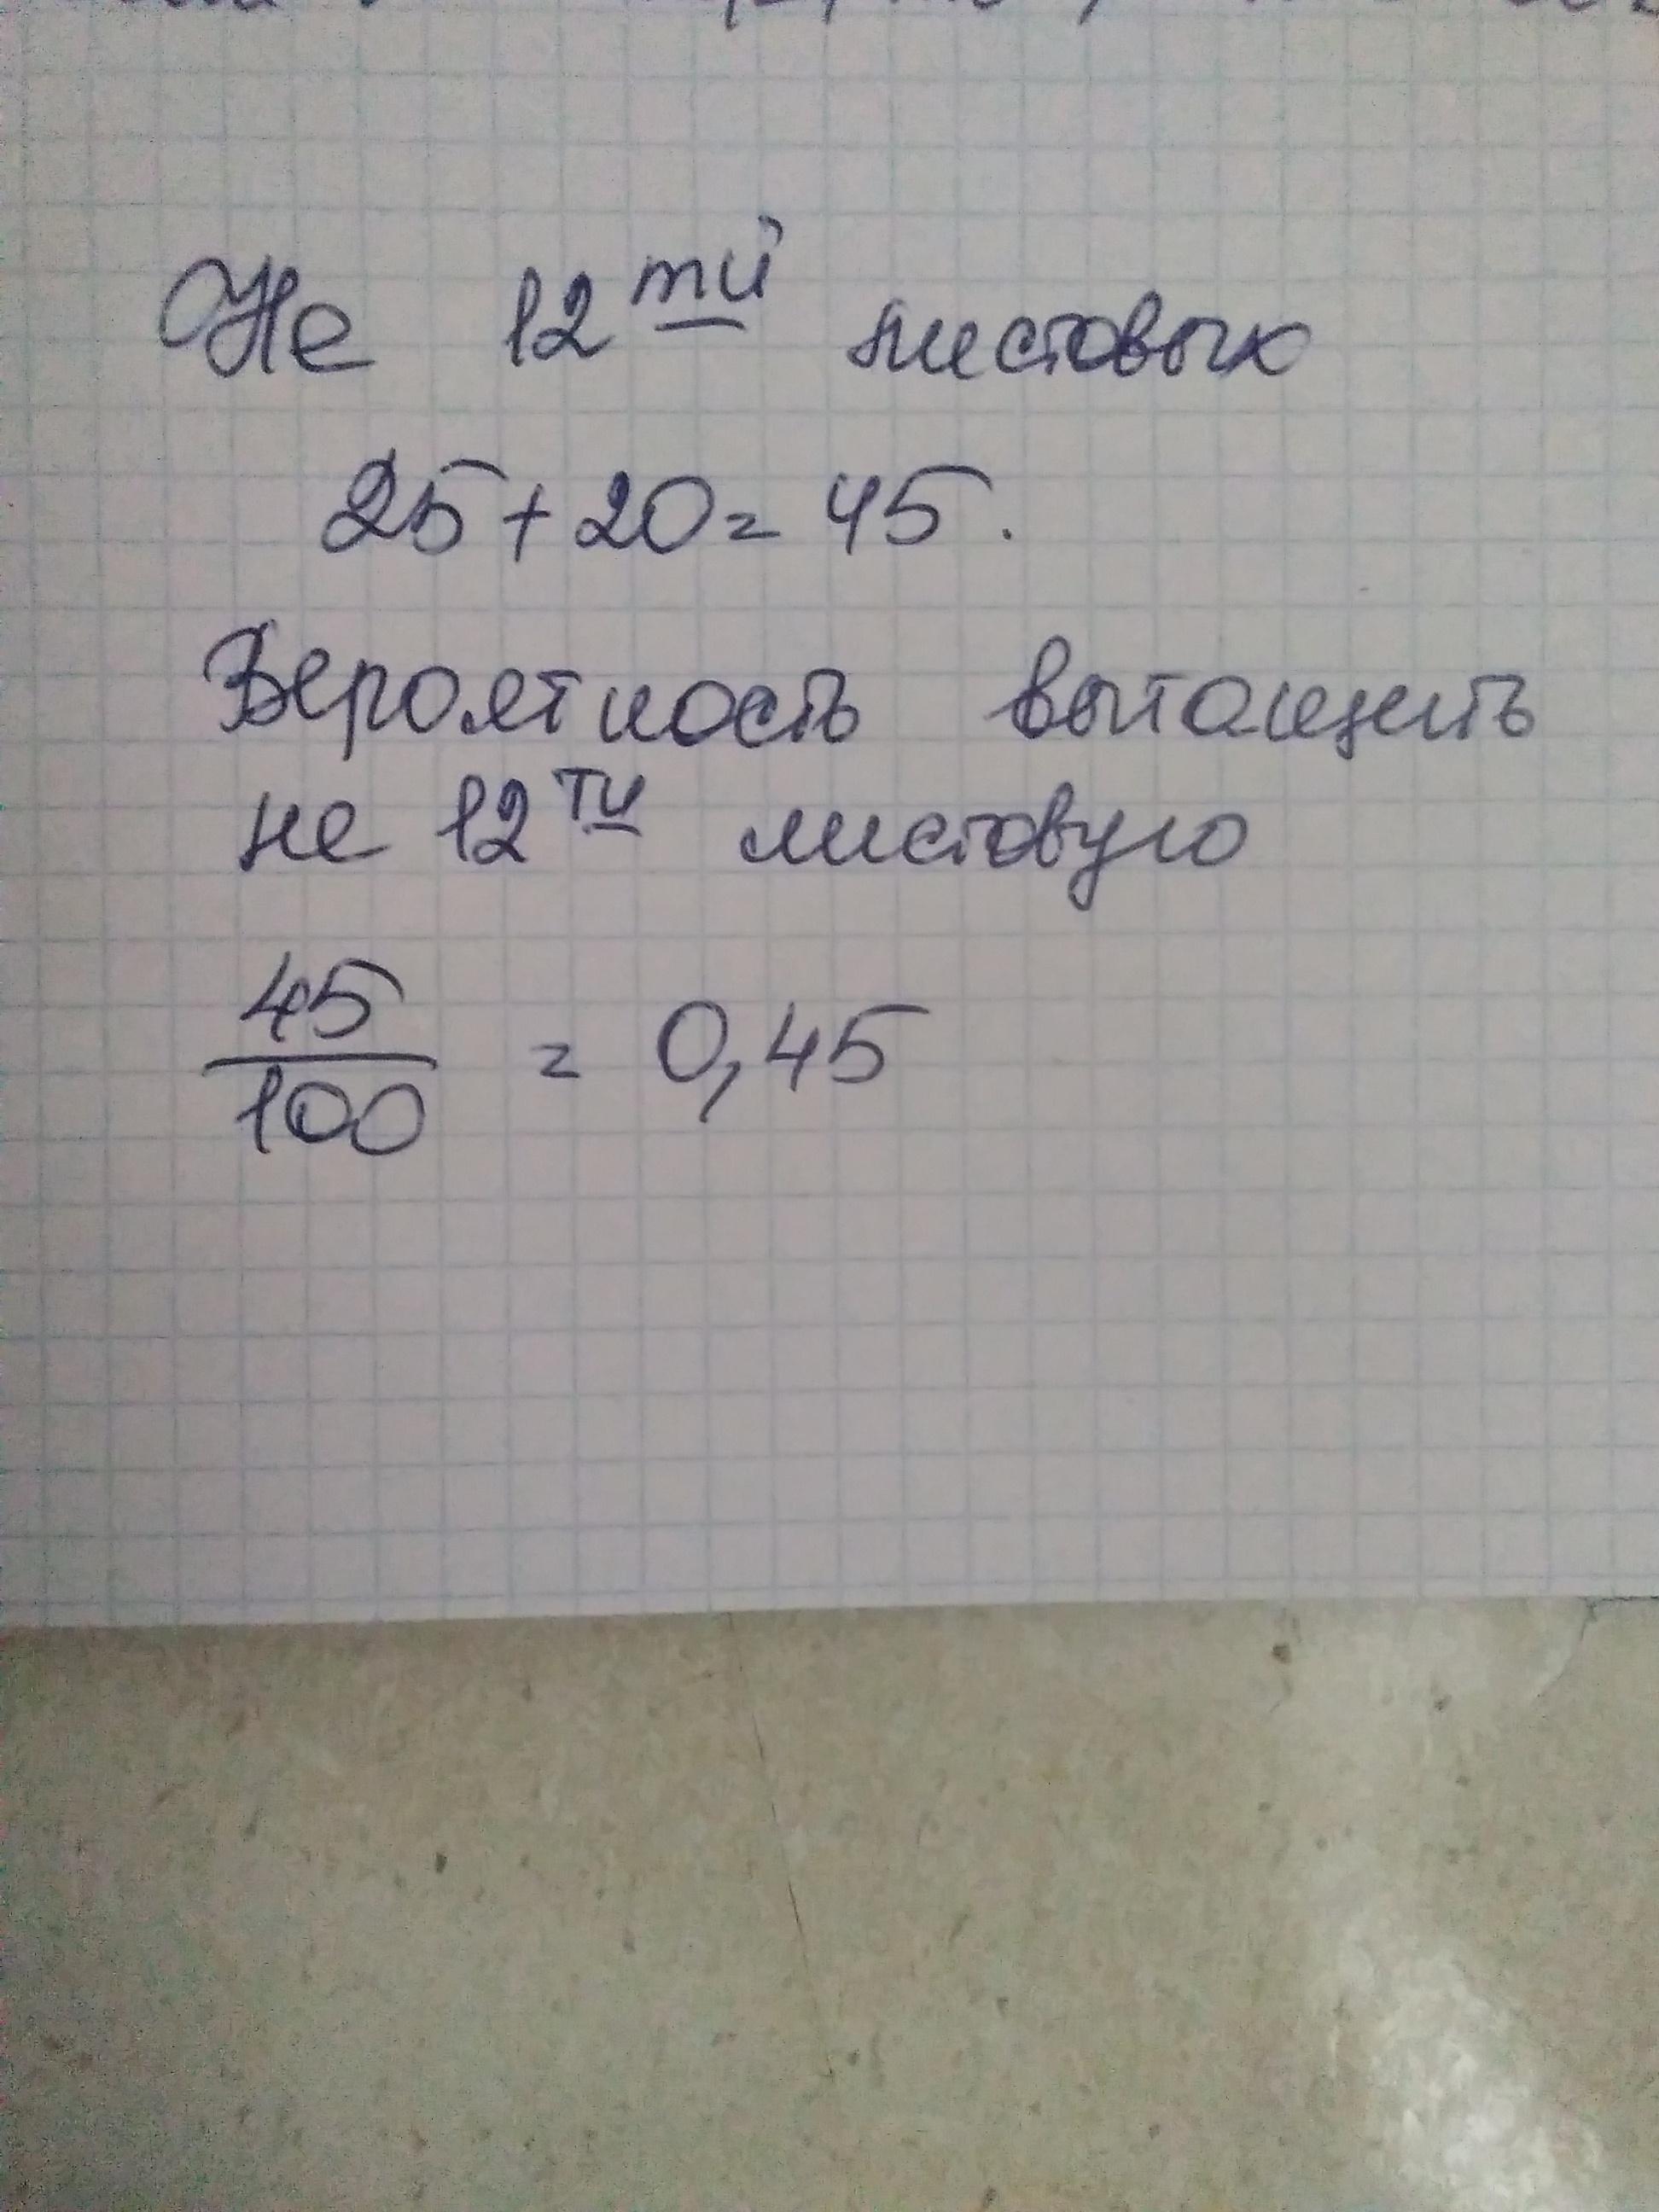 Не 12тй листовых
25+20=45.
Вероятность вытащить
не 12ти листовую
45/100 = 0,45